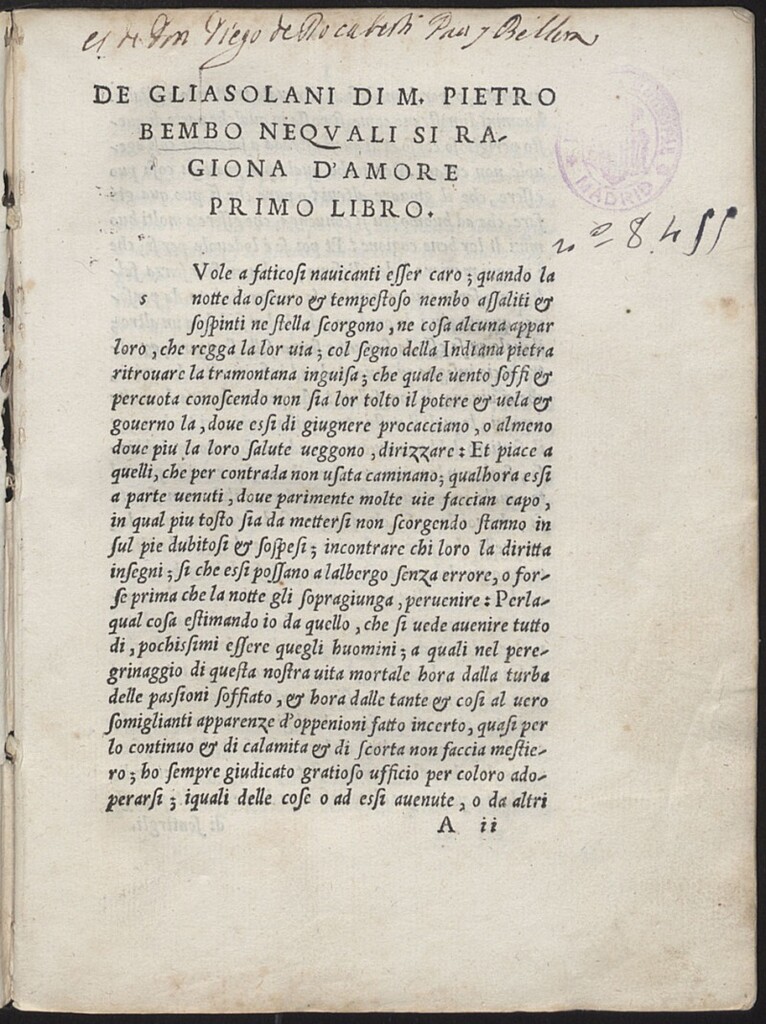 es de Don Diego de Rocaberti Pau y Bellera
DE GLIASOLANI DI M. PIETRO
BEMBO NEQVALI SI RA-
GIONA D'AMORE
PRIMO LIBRO.
MADRID
nº 8.455
Vole a faticoſi nauicanti eſſer caro; quando la
s notte da oſcuro & tempeſtoſo nembo aſſaliti &
ſoſpinti ne ſtella ſcorgono, ne coſa alcuna appar
loro, che regga la lor uia; col ſegno della Indiana pietra
ritrouare la tramontana inguiſa; che quale uento ſoffi &
percuota conoſcendo non ſia lor tolto il potere & uela &
gouerno la, doue eſſi di giugnere procacciano, o almeno
doue piu la loro ſalute ueggono, dirizzare: Et piace a
quelli, che per contrada non uſata caminano; qualhora eſſi
a parte uenuti, doue parimente molte uie faccian capo,
in qual piu toſto ſia da metterſi non ſcorgendo ſtanno in
ſul pie dubitoſi & ſoſpeſi; incontrare chi loro la diritta
inſegni; ſi che eſſi poſſano alalbergo ſenza errore, o for-
ſe prima che la notte gli ſopragiunga, peruenire: Perla-
qual coſa eſtimando io da quello, che ſi uede auenire tutto
di, pochiſſimi eſſere quegli huomini; a quali nel pere-
grinaggio di queſta noſtra uita mortale hora dalla turba
delle paſſioni ſoffiato, & hora dalle tante & coſi al uero
ſomiglianti apparenze d'oppenioni fatto incerto, quaſi per
lo continuo & di calamita & di ſcorta non faccia meſtie-
ro; ho ſempre giudicato gratioſo ufficio per coloro ado-
perarſi; iquali delle coſe o ad eſſi auenute, o da altri
A ii